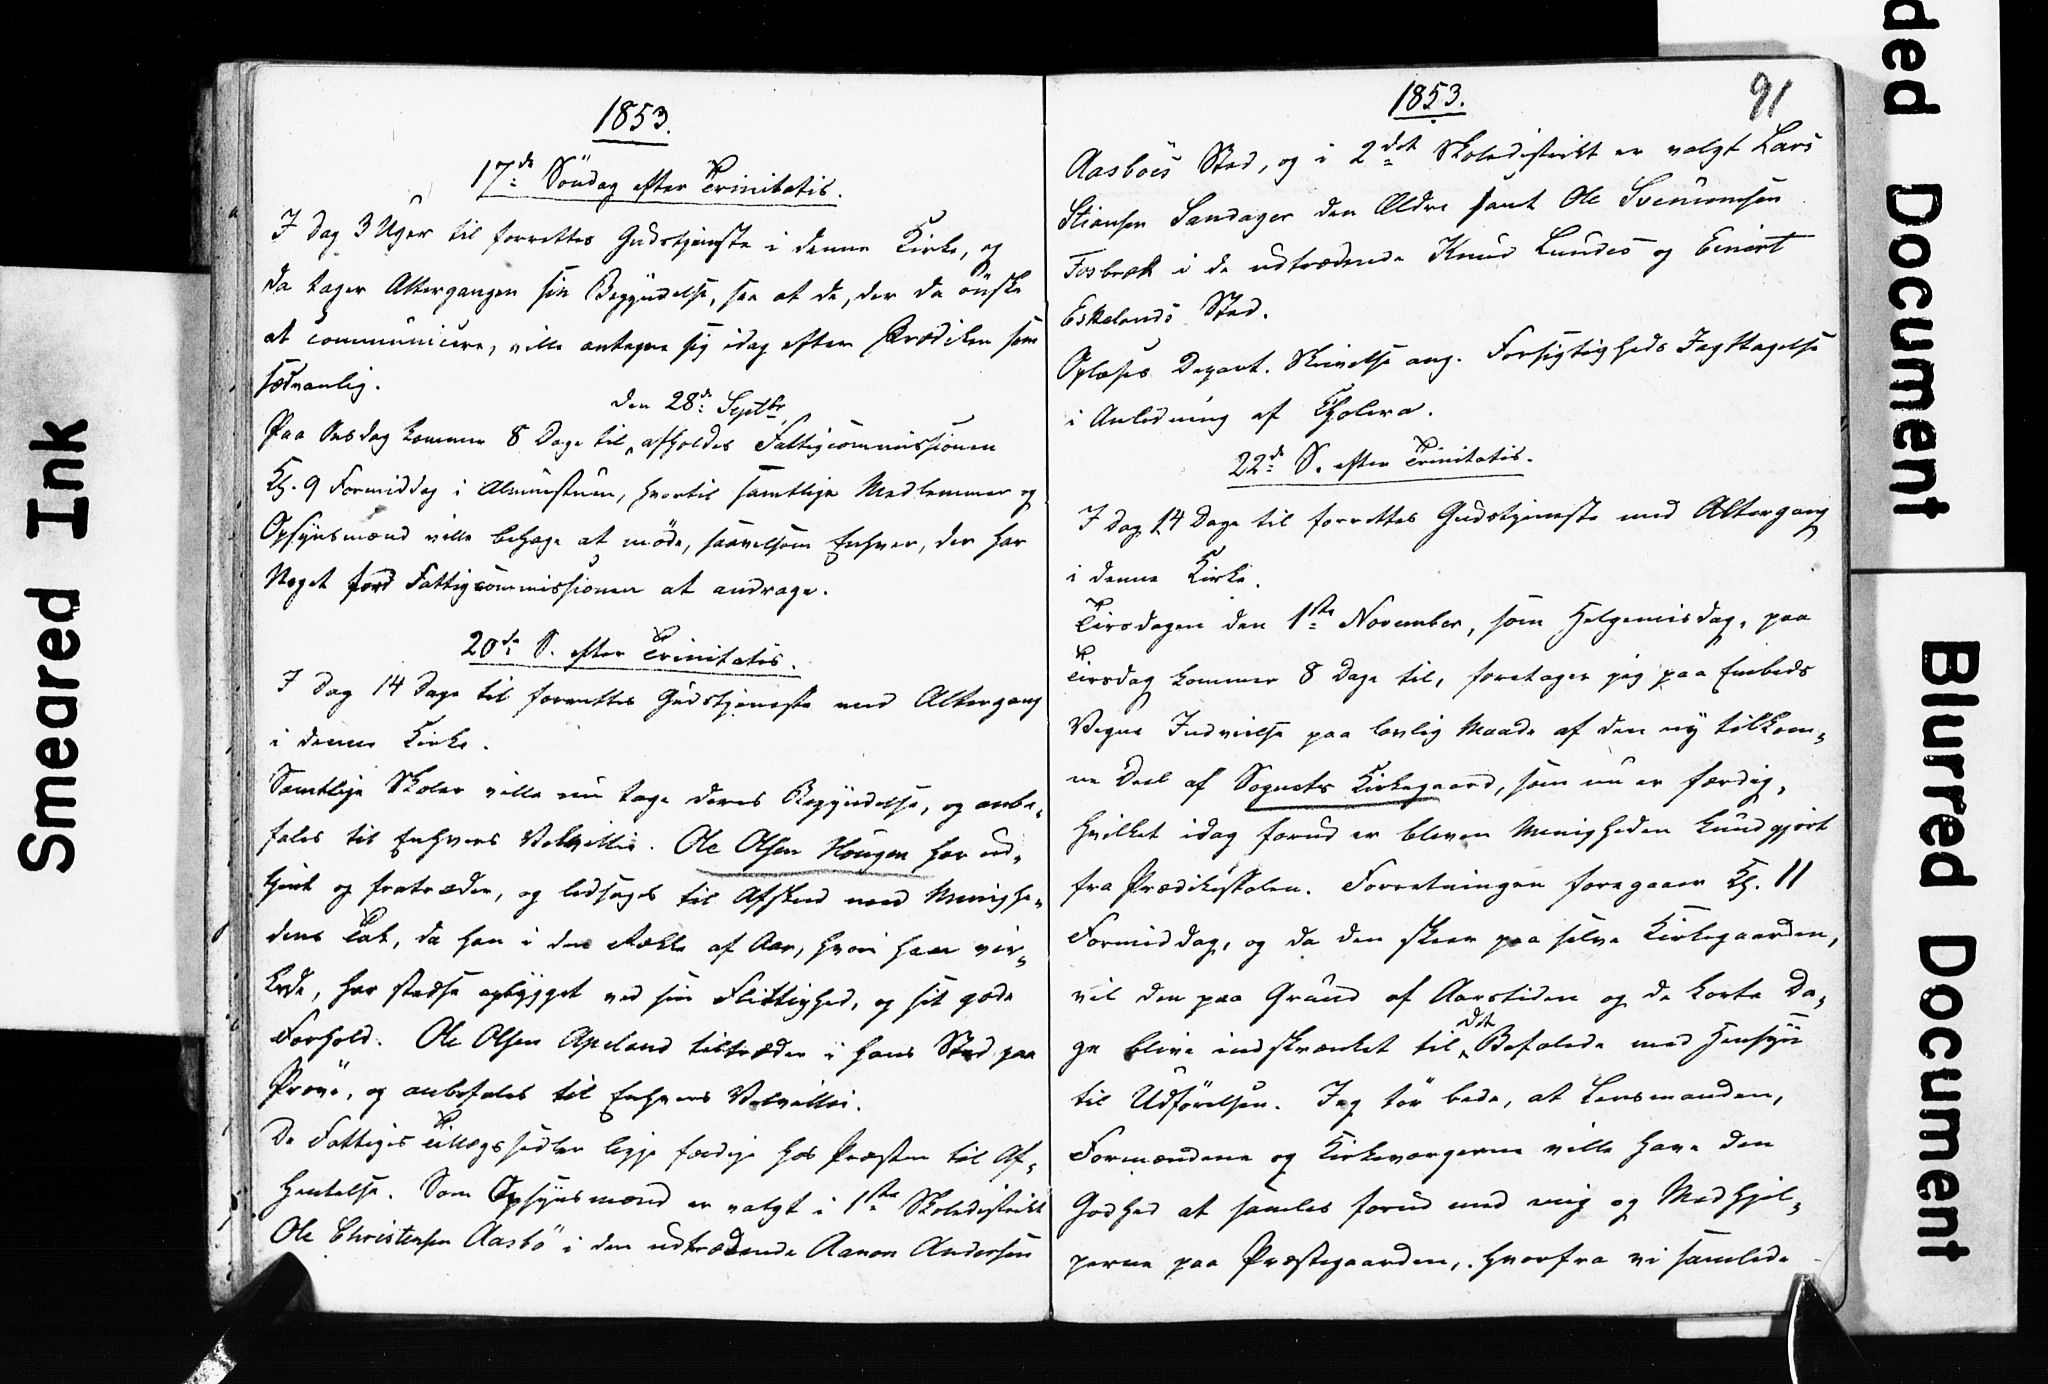 1853.
17de Söndag efter Trinitatis.
I Dag 3 Uger til forrettes Gudstjeneste i denne Kirke, og
da tager Altergangen sin Begyndelse, saa at de, der da önske
at communicere, ville antegne sig idag efter Prædiken som
sædvanlig.
den 28de Septbr.
Paa Onsdag kommer 8 Dage til, afholdes Fattigcommissionen
Kl. 9 Formiddag i Almuestuen, hvortil samtlige Medlemmer og
Opsynsmænd ville behage at möde, saavelsom Enhver, der har
Noget for Fattigcommissionen at andrage.
20de S. efter Trinitatis.
I Dag 14 Dage til forrettes Gudstjeneste med Altergang
i denne Kirke.
Samtlige Skoler ville nu tage deres Begyndelse, og anbe-
fales til Enhvers Velvillie. Ole Olsen Hougen har ud-
tjent og fratræder, og ledsages til Afsked med Menighe-
dens Tak, da han i den Række af Aar, hvori han vir-
kede, har stedse opbygget ved sin Flittighed, og sit gode
Forhold. Ole Olsen Apeland tiltræder i hans Sted paa
Pröve, og anbefales til Enhvers Velvillie.
De Fattiges Tillægssedler ligge færdige hos Præsten til Af-
hentelse. Som Opsynsmænd er valgt i 1ste Skoledistrikt
Ole Christensen Aasbö i den udtrædende Aanon Andersen
1853.
91
Aasböes Sted, og i 2det Skoledistrikt er valgt Lars
Stiansen Sandager den Ældre samt Ole Svenumsen
Fosbræk i de udtrædende Knud Lundes og Einert
Eskelands Sted.
Oplæses Depart. Skrivelse ang. Forsigtigheds Iagttagelse
i Anledning af Cholera.
22de S. efter Trinitatis.
I Dag 14 Dage til forrettes Gudstjeneste med Altergang
i denne Kirke.
Tirsdagen den 1ste November, som Helgemisdag, paa
Tirsdag kommer 8 Dage til, foretager jeg paa Embeds
Vegne Indvielse paa lovlig Maade af den ny tilkom-
ne Deel af Sognets Kirkegaard, som nu er færdig,
hvilket idag forud er bleven Menigheden kundgjort
fra Prædikestolen. Forretningen foregaaer Kl. 11
Formiddag, og da den skeer paa selve Kirkegaarden,
vil den paa Grund af Aarstiden og de korte Da-
ge blive indskrænket til det Befalede med Hensyn
til Udförelsen. Jeg tör bede, at Lensmanden,
Formændene og Kirkevergerne ville have den
Godhed at samles forud med mig og Medhjel-
perne paa Præstegaarden, hvorfra vi samlede
Smeared Ink
ded Document
Blurred Document